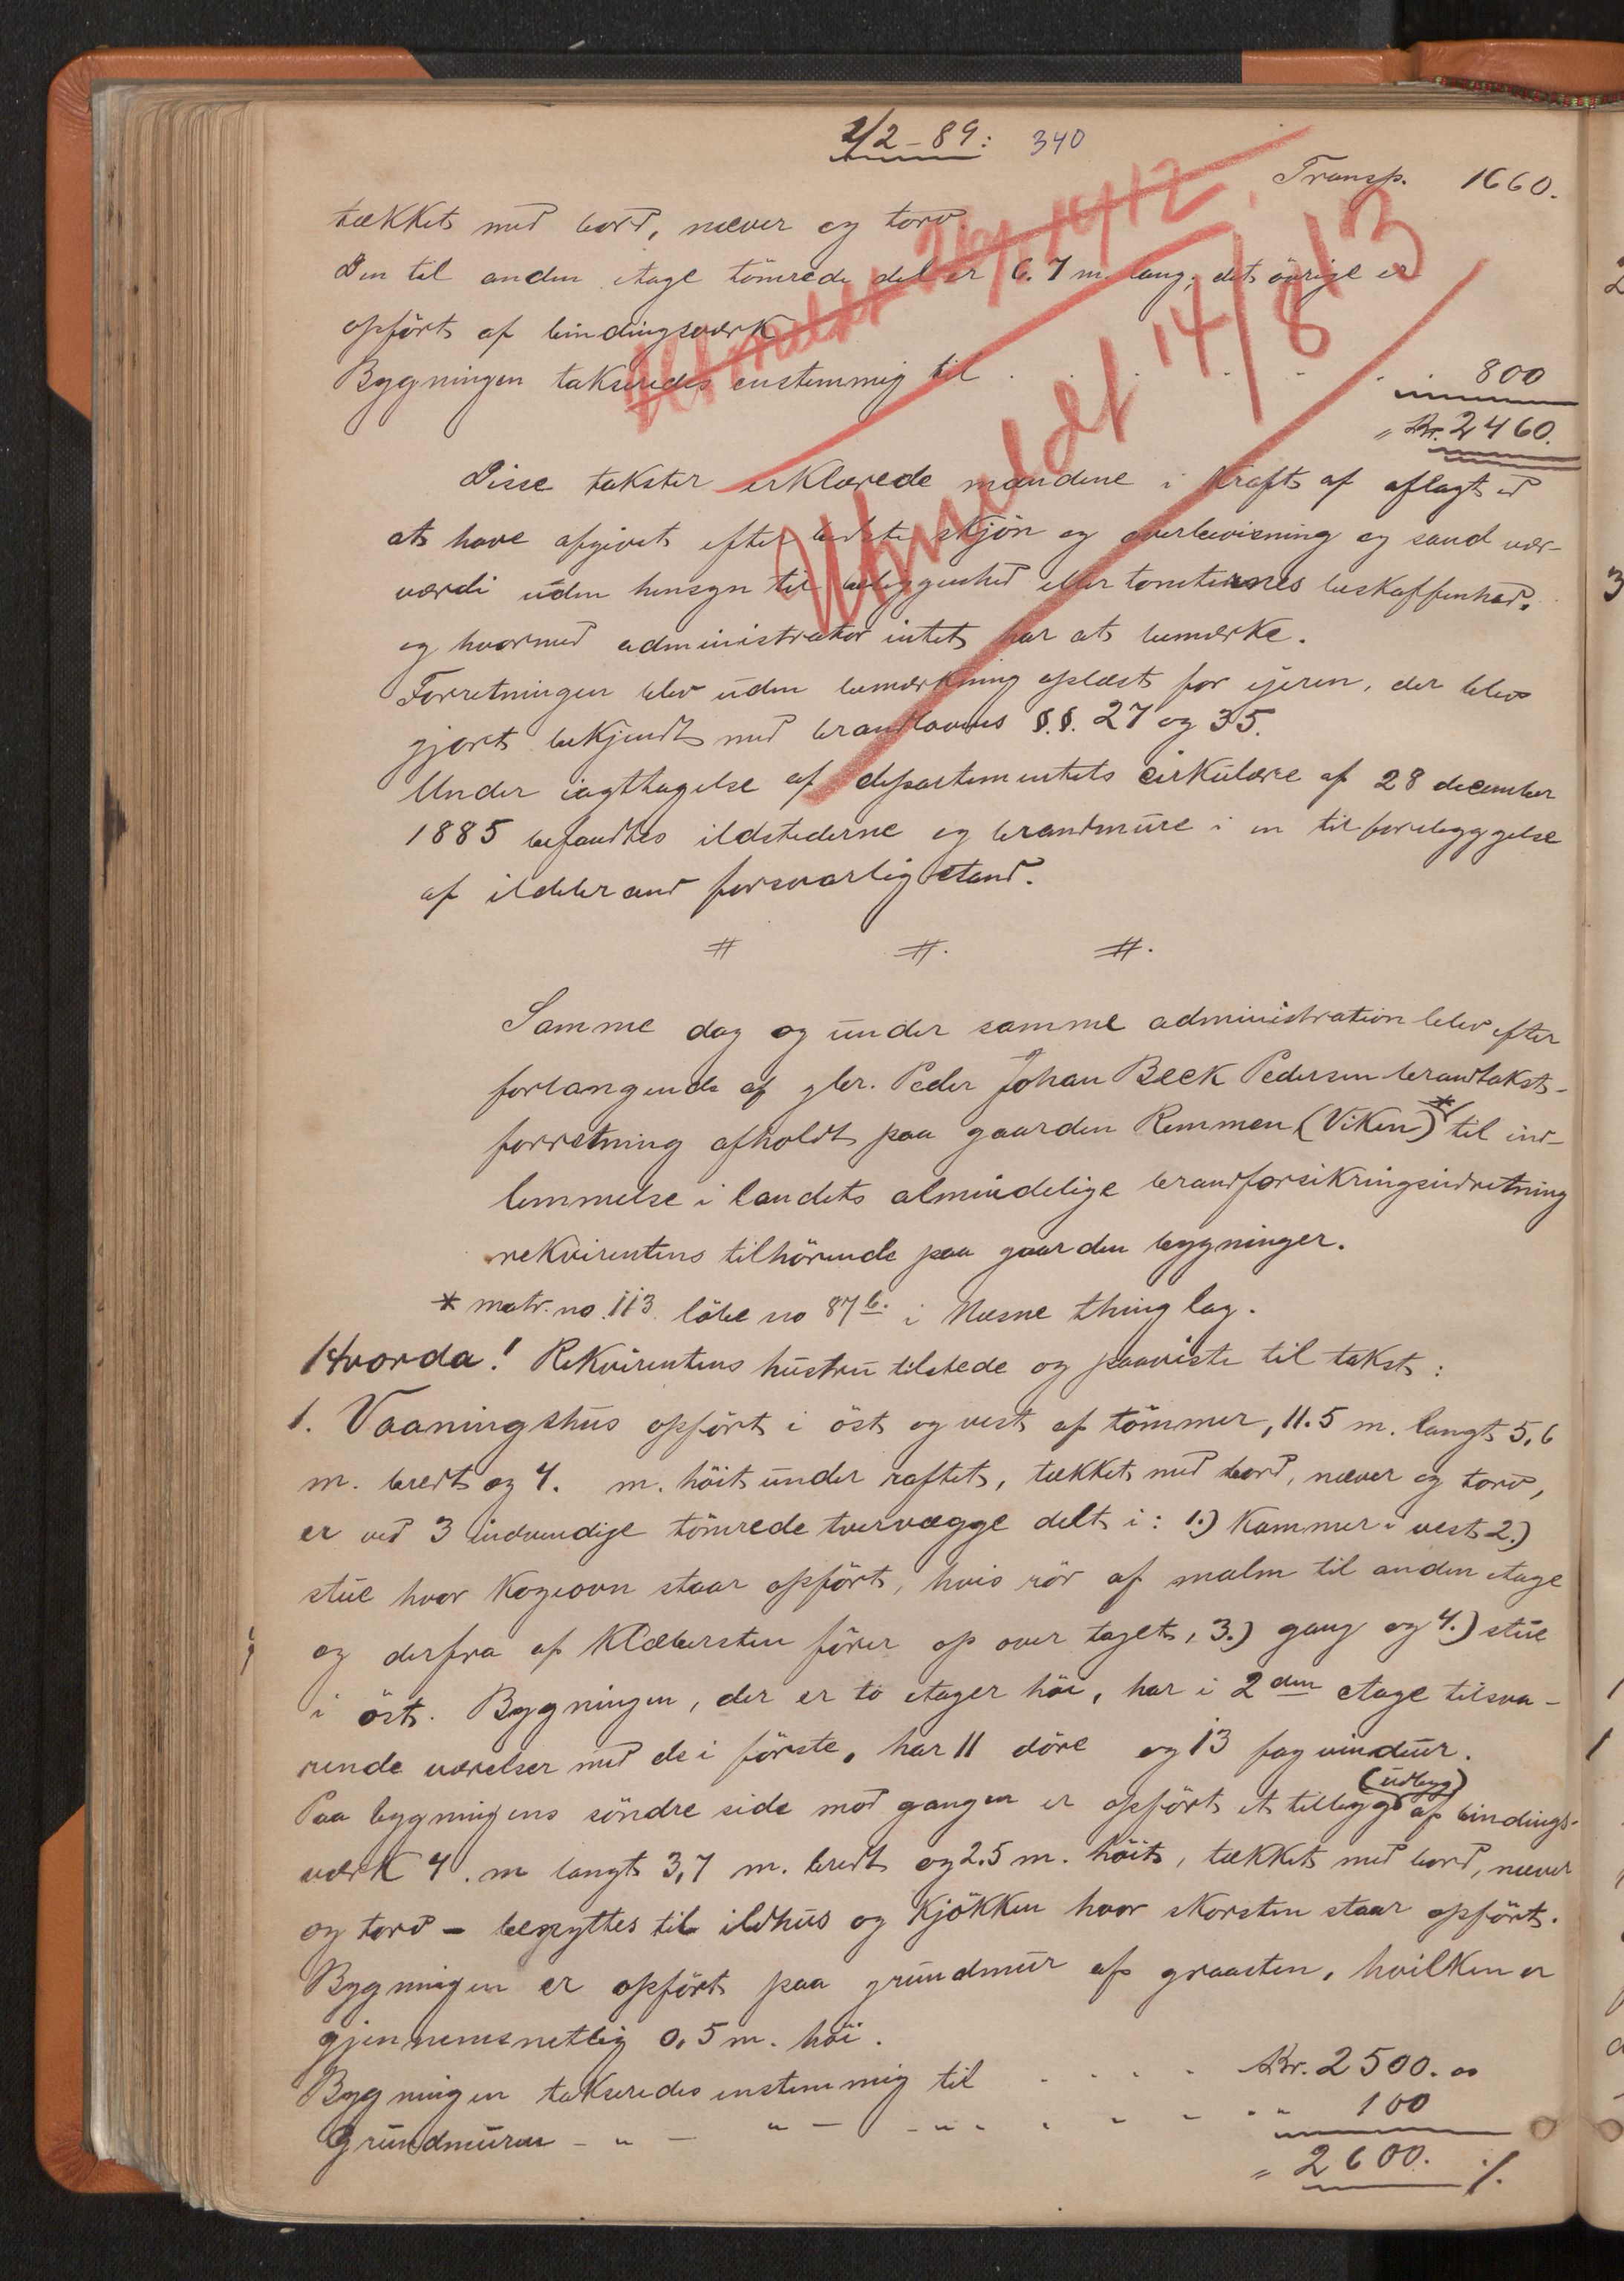 2/2 - 89: 340
Transp. 1660.
tækket med bord, næver og torv.
Den til anden etage tömrede del er 6.7 m. lang; det övrige er
opfört af bindingsværk
Bygningen takseredes enstemmig til . . . . . 800
" Kr. 2460.
Udmeldt 14/8 13
Disse takster erklærede mændene i kraft af aflagt ed
at have afgivet efter bedste skjön og overbevisning og sand vær-
værdi uden hensyn til beliggenhed eller tomternes beskaffenhed.
og hvormed administrator intet har at bemærke.
Forretningen blev uden bemærkning oplæst for ejeren, der blev
gjort bekjendt med brandlovens §.§. 27 og 35.
Under iagttagelse af departementets cirkulære af 28 december
1885 befandtes ildstederne og brandmure i en til forebyggelse
af ildebrand forsvarlig stand.
# #. #.
Samme dag og under samme administration blev efter
forlangende af gbr. Peder Johan Beck Pedersen brandtakst-
forretning afholdt paa gaarden Remmen (Viken)* til ind-
lemmelse i landets almindelige brandforsikringsindretning
rekvirentens tilhörende paa gaarden bygninger.
* matr. no. 113 löbe no 87 b. i Næsne thinglag.
Hvorda! Rekvirentens hustru tilstede og paaviste til takst:
1. Vaaningshus opfört i öst og vest af tömmer, 11.5 m. langt 5,6
m. bredt og 4. m. höit under raftet, tækket med bord, næver og torv,
er ved 3 indvendige tömrede tvervægge delt i: 1.) Kammer i vest 2.)
stue hvor kogeovn staar opfört, hvis rör af malm til anden etage
og derfra af klæbersten förer op over taget, 3.) gang og 4.) stue
i öst. Bygningen, der er to etager höi, har i 2den etage tilsva-
rende værelser med de i förste, har 11 döre og 13 fag vinduer.
Paa bygningens söndre side mod gangen er opfört et tillbygg (udbyg) af bindings-
værk 4. m langt 3,7 m. bredt og 2.5 m. höit, tækket med bord, næver
og torv - benyttes til ildhus og kjökken hvor skorsten staar opfört.
Bygningen er opfört paa grundmur af graasten, hvilken er
gjennemsnetlig 0.5 m. höi.
Bygningen takseredes enstemmig til . . . . Kr. 2500.00
Grundmuren - " - " - - " - . . . " 100
" 2600. ./.